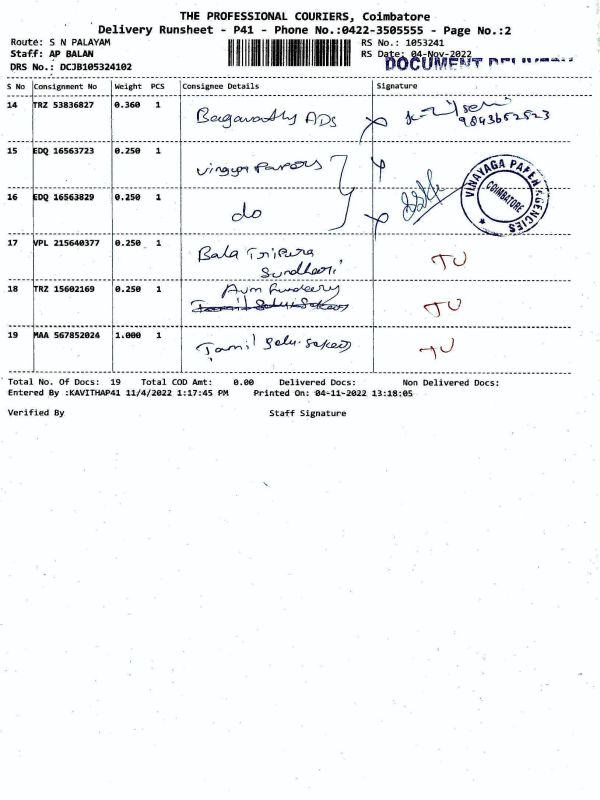 THE PROFESSIONAL COURIERS, Coimbatore
Delivery Runsheet - P41 - Phone No.:0422-3505555 - Page No.:2
Route: S N PALAYAM RS No.: 1053241
Staff: AP BALAN RS Date: 04-Nov-2022
DRS No.: DCJB105324102 DOCUMENT
S No Consignment No Weight PCS Consignee Details Signature
14 TRZ 53836827 0.360 1 ADS
15 EDQ 16563723 0.250 1
16 EDQ 16563829 0.250 1 do
VINAYAGA PAPER AGENCIES
COIMBATORE
17 VPL 215640377 0.250 1 Bala Tripura
Sundhari TU
18 TRZ 15602169 0.250 1 TU
19 MAA 567852024 1.000 1 Tamil TU
Total No. Of Docs: 19 Total COD Amt: 0.00 Delivered Docs: Non Delivered Docs:
Entered By :KAVITHAP41 11/4/2022 1:17:45 PM Printed On: 04-11-2022 13:18:05
Verified By Staff Signature